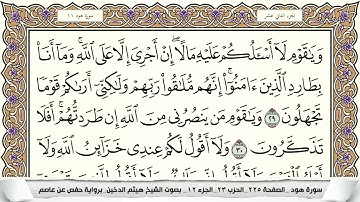 الجزء الثاني عشر
سورة هود ١١
وَيَٰقَوْمِ لَآ أَسْـَٔلُكُمْ عَلَيْهِ مَالًا ۖ إِنْ أَجْرِىَ إِلَّا عَلَى ٱللَّهِ ۚ وَمَآ أَنَا۠
بِطَارِدِ ٱلَّذِينَ ءَامَنُوٓا۟ ۚ إِنَّهُم مُّلَٰقُوا۟ رَبِّهِمْ وَلَٰكِنِّىٓ أَرَىٰكُمْ قَوْمًا
تَجْهَلُونَ ٢٩ وَيَٰقَوْمِ مَن يَنصُرُنِى مِنَ ٱللَّهِ إِن طَرَدتُّهُمْ ۚ أَفَلَا
تَذَكَّرُونَ ٣٠ وَلَآ أَقُولُ لَكُمْ عِندِى خَزَآئِنُ ٱللَّهِ وَلَآ
سورة هود _ الصفحة ٢٢٥ _ الحزب ٢٣ _ الجزء ١٢ _ بصوت الشيخ هيثم الدخين _ برواية حفص عن عاصم